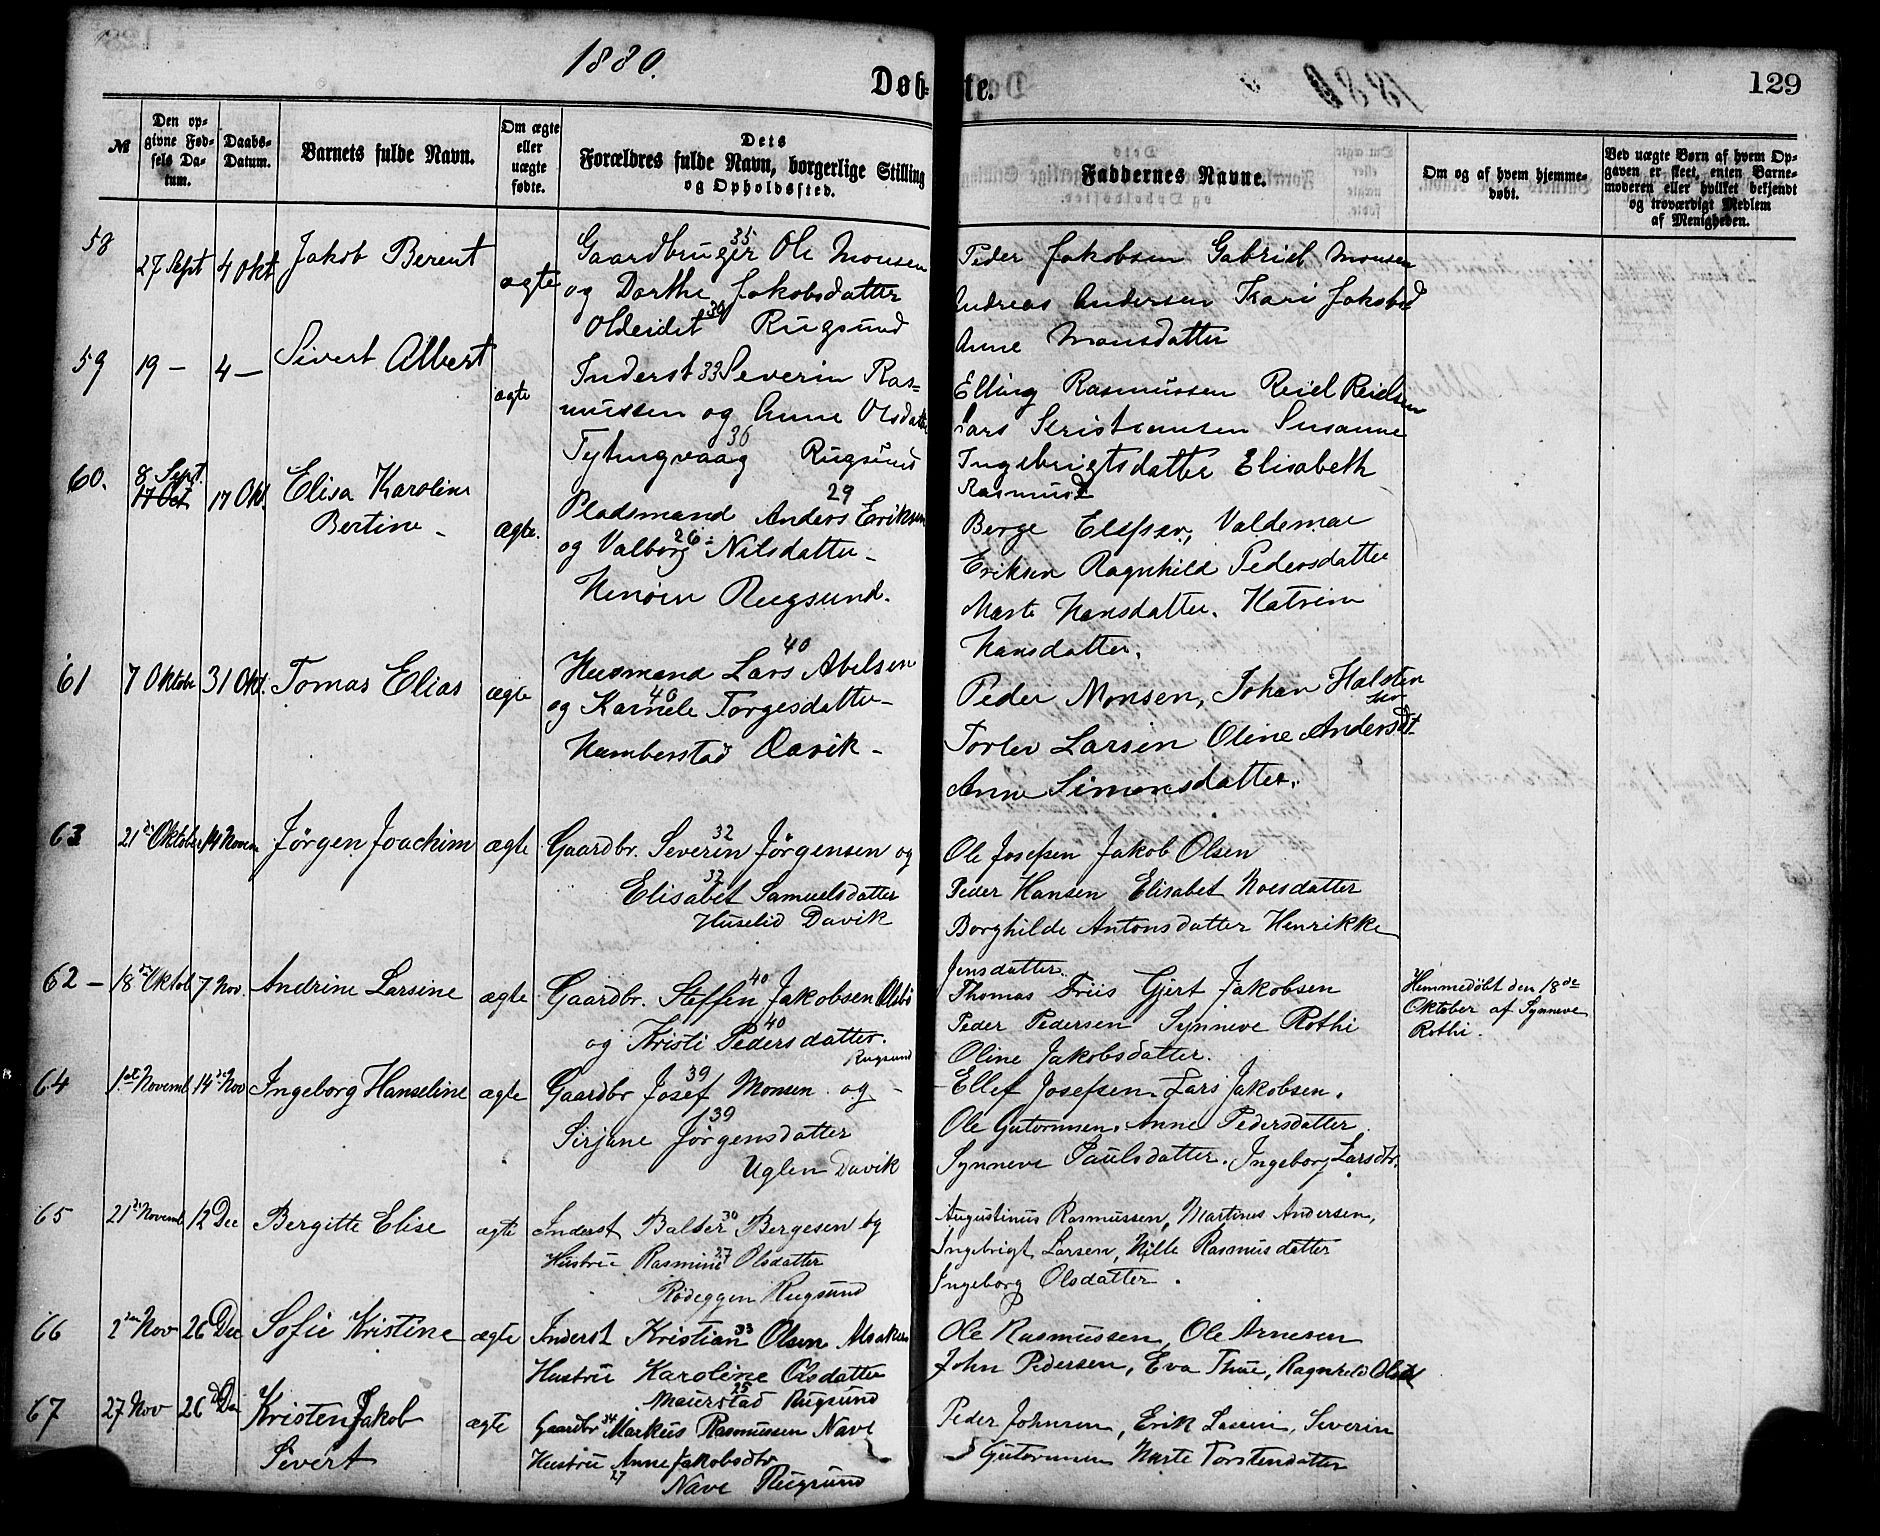 1880.
Døb-te.
129
№
Den op-givne Fød-sels Da-tum.
Daabs-Datum.
Barnets fulde Navn.
Om ægte eller uægte fødte.
Dets Forældres fulde Navn, borgerlige Stilling og Opholdssted.
Faddernes Navne.
Om og af hvem hjemme-døbt.
Ved uægte Børn af hvem Op-gaven er skeet, enten Barne-moderen eller hvilket bekjendt og troværdigt Medlem af Menigheden.
58
27 Sept
4 Okt
Jakob Berent
ægte
Gaardbruger 35 Ole Monsen
og Dorthe Jakobsdatter
Oldeidet 39 Rugsund
Peder Jakobsen Gabriel Monsen
Andreas Andersen Kari Jakobsd
Anne Monsdatter
59
19 –
4 –
Sivert Albert
ægte
Inderst 33 Severin Ras=
mussen og Anne Olsdatter
36
Rugsund
Elling Rasmussen Reiel Reielsen
Lars Kristiansen Susanne
Ingebrigtsdatter Elisabeth
Rasmusd
60.
8 Sept.
17 Oct
17 Okt.
Elisa Karoline
Bertine –
ægte.
29
Pladsmand Anders Eriksen
og Valborg 26 Nilsdatter –
Rugsund.
Berge Valdemar
Eriksen Ragnhild Pedersdatter
Marte Hansdatter. Katrine
Hansdatter.
61
7 Oktobe
31 Okt.
Tomas Elias
ægte
40
Husmand Lars Abelsen
40
og Karnele Torgesdatter –
Humberstad Davik –
Peder Monsen, Johan Halsten
sen
Torlev Larsen Oline Andersdt
Anne Simonsdatter.
63
21de Oktober
14 Novem
Jörgen Joachim
ægte
Gaardbr. Severin 32 Jörgensen og
32
Elisabet Samuelsdatter
Huselid Davik
Ole Josefsen Jakob Olsen
Peder Hansen Elisabet Moesdatter
Borghilde Antonsdatter Henrikke
Jensdatter.
62 –
18de Oktob
7 Nov.
Andrine Larsine
ægte
Gaardbr. Steffen 40 Jakobsen
40
og Kristi Pedersdatter.
Rugsund
Thomas Friis Gjert Jakobsen
Peder Pedersen Synneve Rothi
Oline Jakobsdatter.
Hemmedöbt den 18de
Oktober af Synneve
Rothi.
64
1ste Novemb
14de Nov
Ingeborg Hanseline
ægte
Gaardbr Josef 39 Monsen og –
39
Sirjane Jörgensdatter
Uglen Davik
Ellef Josefsen. Lars Jakobsen.
Ole Gutormsen. Anne Pedersdatter
Synneve Paulsdatter. Ingeborg Larsdtr.
65
21de Novemb
12 Dec
Bergitte Elise
ægte
Inderst Balser 30 Bergesen og
Hustru Rasmine 27 Olsdatter
Rödeggen Rugsund
Augustinus Rasmussen, Martinus Andersen,
Ingebrigt Larsen, Nille Rasmusdatter
Ingeborg Olsdatter.
66
2den Nov
26 Dec
Sofie Kristine
ægte
Inderst Kristian 33 Olsen
Hustru Karoline Olsdatter
25
Maurstad Rugsund
Ole Rasmussen, Ole Arnesen
John Pedersen, Eva Thue, Ragnhild Olsdt
67
27 Nov
26 Dec
Kristen Jakob
Severt
ægte
Gaardbr 34 Markus Rasmussen Nave
Hustru Anne Jakobsdtr
27
Nave Rugsund
Peder Johnsen, Erik Larsen, Severin
Gutormsen Marte Torstendatter